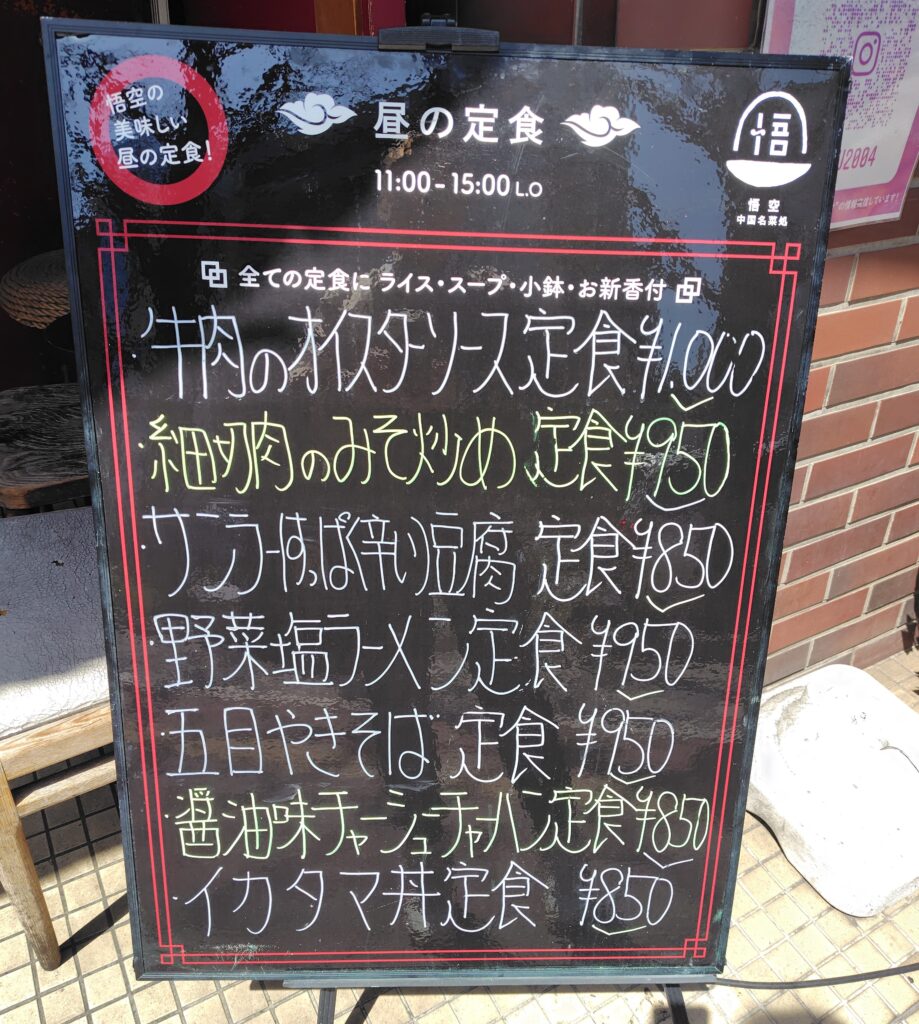 悟空の
美味しい
昼の定食!
昼の定食
11:00-15:00 L.O
悟
悟空
中国名菜処
J2004
全ての定食に ライス・スープ・小鉢・お新香付
・牛肉のオイスターソース定食 ¥1.000
・細切肉のみそ炒め 定食 ¥950
・サンラーすっぱ辛い豆腐 定食 ¥850
・野菜塩ラーメン定食 ¥950
・五目やきそば 定食 ¥950
・醤油味チャーシューチャーハン定食 ¥850
・イカタマ丼定食 ¥850